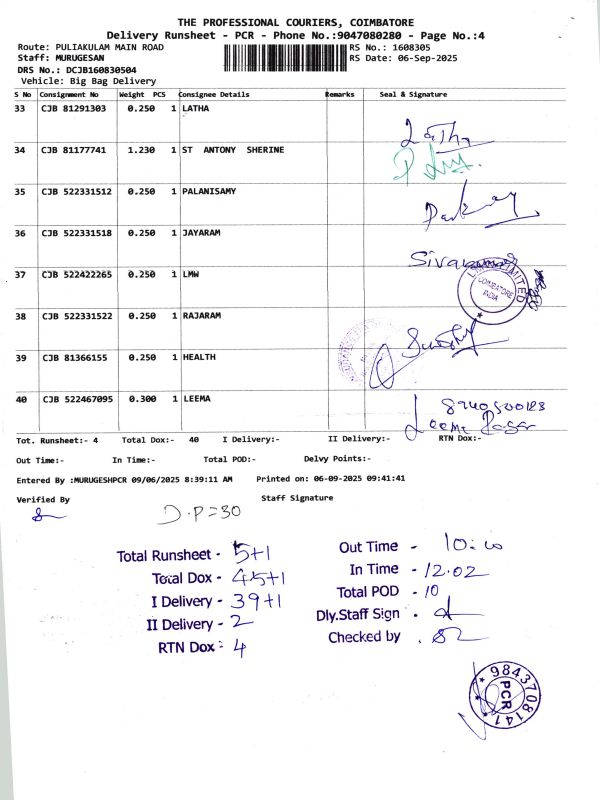 THE PROFESSIONAL COURIERS, COIMBATORE
Delivery Runsheet - PCR - Phone No.:9047080280 - Page No.:4
Route: PULIAKULAM MAIN ROAD RS No.: 1608305
Staff: MURUGESAN RS Date: 06-Sep-2025
DRS No.: DCJB160830504
Vehicle: Big Bag Delivery
S No Consignment No Weight PCS Consignee Details Remarks Seal & Signature
33 CJB 81291303 0.250 1 LATHA
Latha
34 CJB 81177741 1.230 1 ST ANTONY SHERINE
35 CJB 522331512 0.250 1 PALANISAMY
36 CJB 522331518 0.250 1 JAYARAM
Sivakumar
37 CJB 522422265 0.250 1 LMW
LIMITED
COIMBATORE
INDIA
38 CJB 522331522 0.250 1 RAJARAM
39 CJB 81366155 0.250 1 HEALTH
40 CJB 522467095 0.300 1 LEEMA
Leema
Tot. Runsheet:- 4 Total Dox:- 40 I Delivery:- II Delivery:- RTN Dox:-
Out Time:- In Time:- Total POD:- Delvy Points:-
Entered By :MURUGESHPCR 09/06/2025 8:39:11 AM Printed on: 06-09-2025 09:41:41
Verified By Staff Signature
D.P=30
Total Runsheet - 5+1
Total Dox - 45+1
I Delivery - 39+1
II Delivery - 2
RTN Dox: 4
Out Time -
In Time - 12.02
Total POD - 10
Dly.Staff Sign -
Checked by
9843708141
PCR